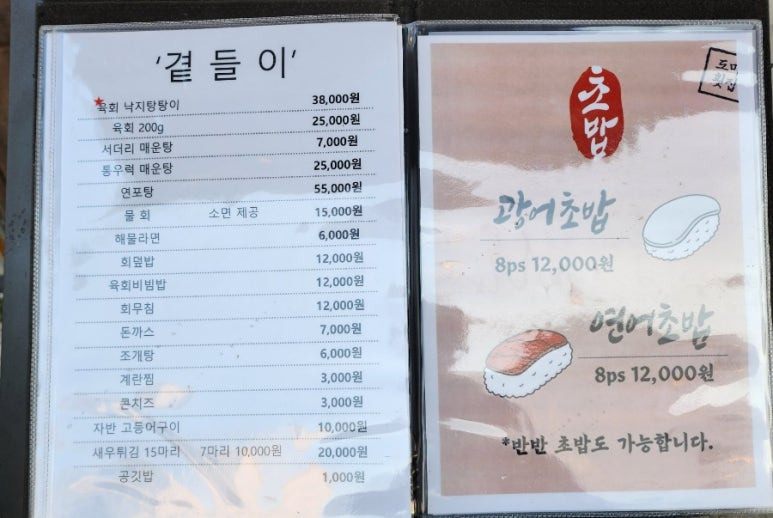 '곁들이'
육회 낙지탕탕이 38,000원
육회 200g 25,000원
서더리 매운탕 7,000원
통우럭 매운탕 25,000원
연포탕 55,000원
물 회 소면 제공 15,000원
해물라면 6,000원
회덮밥 12,000원
육회비빔밥 12,000원
회무침 12,000원
돈까스 7,000원
조개탕 6,000원
계란찜 3,000원
콘치즈 3,000원
자반 고등어구이 10,000원
새우튀김 15마리 7마리 10,000원 20,000원
공깃밥 1,000원
초밥
횟집
광어초밥
8ps 12,000원
연어초밥
8ps 12,000원
*반반 초밥도 가능합니다.